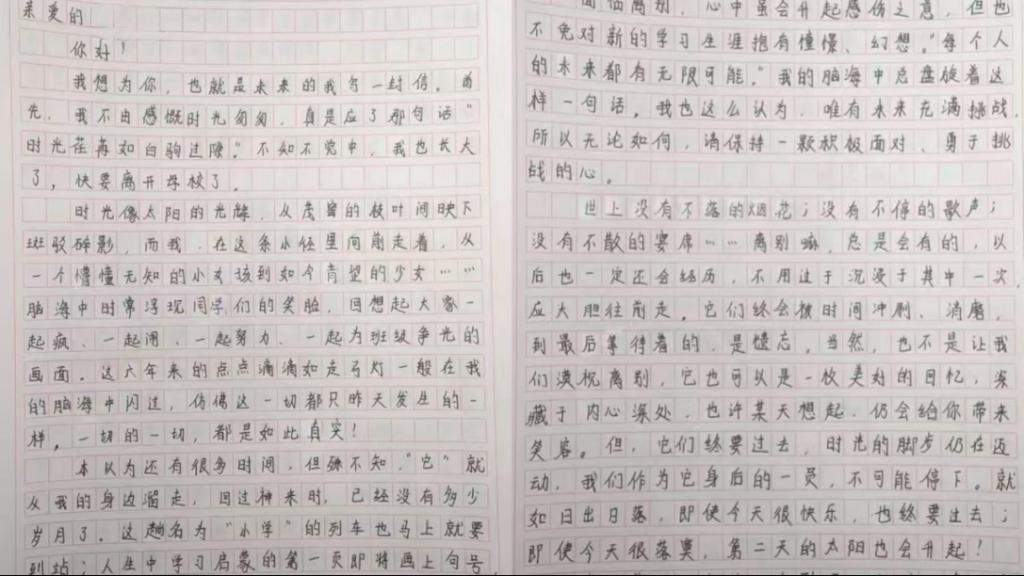 亲爱的
你好！
我想为你，也就是未来的我写一封信。首
先，我不由感慨时光匆匆，真是应了那句话“
时光荏苒如白驹过隙。”不知不觉中，我也长大
了，快要离开母校了。
时光像太阳的光辉，从茂密的枝叶间映下
斑驳碎影，而我，在这条小径里向前走着，从
一个懵懂无知的小女孩到如今肯望的少女……
脑海中时常浮现同学们的笑脸，回想起大家一
起疯、一起闹、一起努力、一起为班级争光的
画面。这六年来的点点滴滴如走马灯一般在我
的脑海中闪过，仿佛这一切都只昨天发生的一
样。一切的一切，都是如此真实！
本以为还有很多时间，但殊不知，“它”就
从我的身边溜走，回过神来时，已经没有多少
岁月了。这趟名为“小学”的列车也马上就要
到站；人生中学习启蒙的第一页即将画上句号
面临离别，心中虽会升起感伤之意，但也
不免对新的学习生涯抱有憧憬、幻想。“每个人
的未来都有无限可能。”我的脑海中总盘旋着这
样一句话。我也这么认为，唯有未来充满挑战，
所以无论如何，请保持一颗积极面对、勇于挑
战的心。
世上没有不落的烟花；没有不停的歌声；
没有不散的宴席……离别嘛，总是会有的，以
后也一定还会经历，不用过于沉浸于其中一次，
应大胆往前走。它们终会被时间冲刷、消磨，
到最后等待着的，是遗忘。当然，也不是让我
们漠视离别，它也可以是一枚美好的回忆，深
藏于内心深处，也许某天想起，仍会给你带来
笑容。但，它们终要过去，时光的脚步仍在迈
动，我们作为它身后的一员，不可能停下。就
如日出日落，即使今天很快乐，也终要过去；
即使今天很落寞，第二天的太阳也会升起！